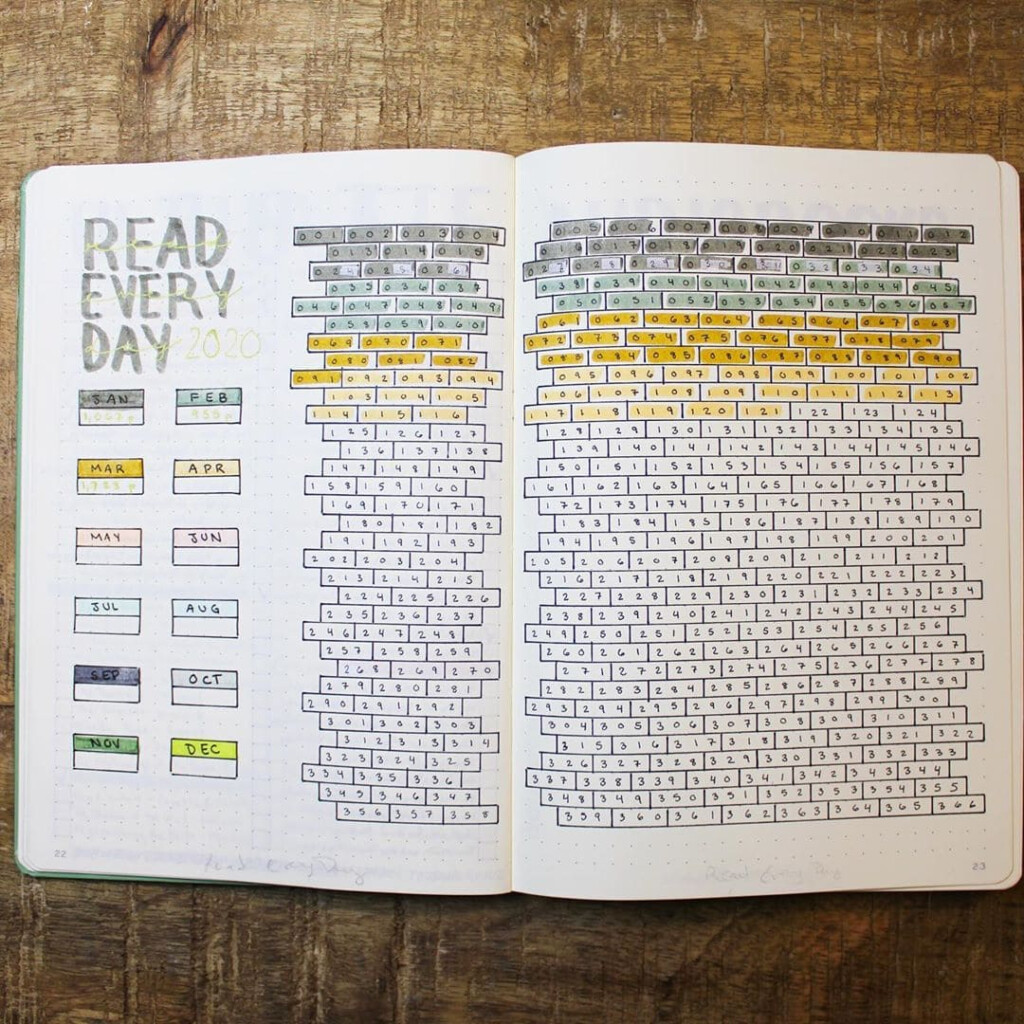 READ
EVERY
DAY 2020
JAN FEB
1,067 p 955 p
MAR APR
1,723 p
MAY JUN
JUL AUG
SEP OCT
NOV DEC
001 002 003 004 005 006 007 008 009 010 011 012
013 014 015 016 017 018 019 020 021 022 023
024 025 026 027 028 029 030 031 032 033 034
035 036 037 038 039 040 041 042 043 044 045
046 047 048 049 050 051 052 053 054 055 056 057
058 059 060 061 062 063 064 065 066 067 068
069 070 071 072 073 074 075 076 077 078 079
080 081 082 083 084 085 086 087 088 089 090
091 092 093 094 095 096 097 098 099 100 101 102
103 104 105 106 107 108 109 110 111 112 113
114 115 116 117 118 119 120 121 122 123 124
125 126 127 128 129 130 131 132 133 134 135
136 137 138 139 140 141 142 143 144 145 146
147 148 149 150 151 152 153 154 155 156 157
158 159 160 161 162 163 164 165 166 167 168
169 170 171 172 173 174 175 176 177 178 179
180 181 182 183 184 185 186 187 188 189 190
191 192 193 194 195 196 197 198 199 200 201
202 203 204 205 206 207 208 209 210 211 212
213 214 215 216 217 218 219 220 221 222 223
224 225 226 227 228 229 230 231 232 233 234
235 236 237 238 239 240 241 242 243 244 245
246 247 248 249 250 251 252 253 254 255 256
257 258 259 260 261 262 263 264 265 266 267
268 269 270 271 272 273 274 275 276 277 278
279 280 281 282 283 284 285 286 287 288 289
290 291 292 293 294 295 296 297 298 299 300
301 302 303 304 305 306 307 308 309 310 311
312 313 314 315 316 317 318 319 320 321 322
323 324 325 326 327 328 329 330 331 332 333
334 335 336 337 338 339 340 341 342 343 344
345 346 347 348 349 350 351 352 353 354 355
356 357 358 359 360 361 362 363 364 365 366
22 Read Every Day
Read Every Day 23